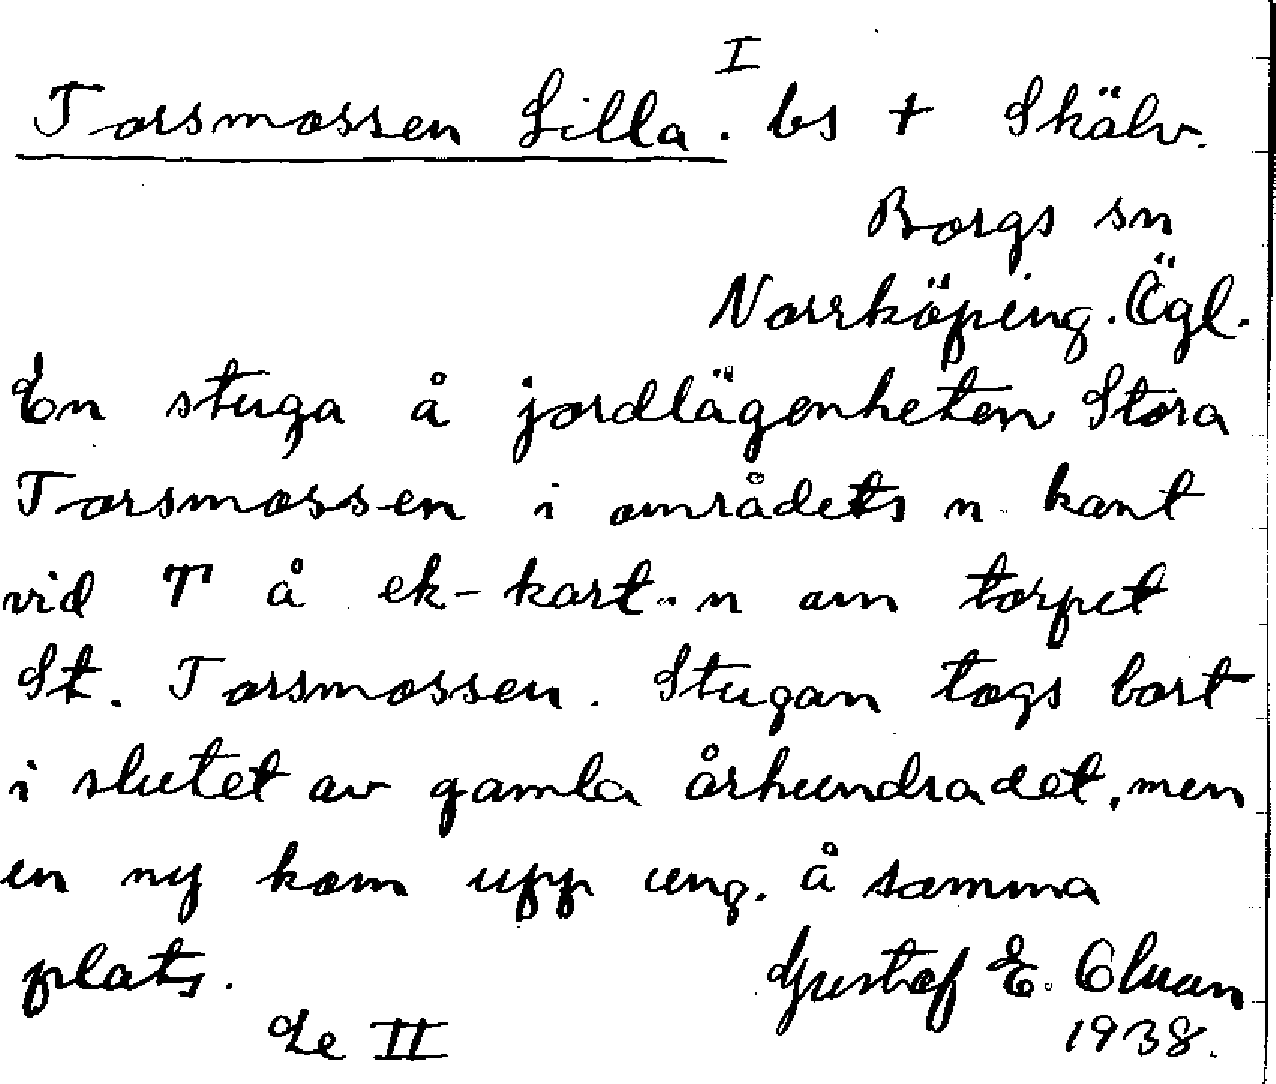 Torsmossen Lilla. I bs + Skälv.
Borgs sn
Norrköping. Ögl.
En stuga å jordlägenheten Stora
Torsmossen i områdets n kant
vid T å ek-kart. n om torpet
St. Torsmossen. Stugan togs bort
i slutet av gamla århundradet, men
en ny kom upp ung. å samma
plats. Gustaf E.
Se II 1938.